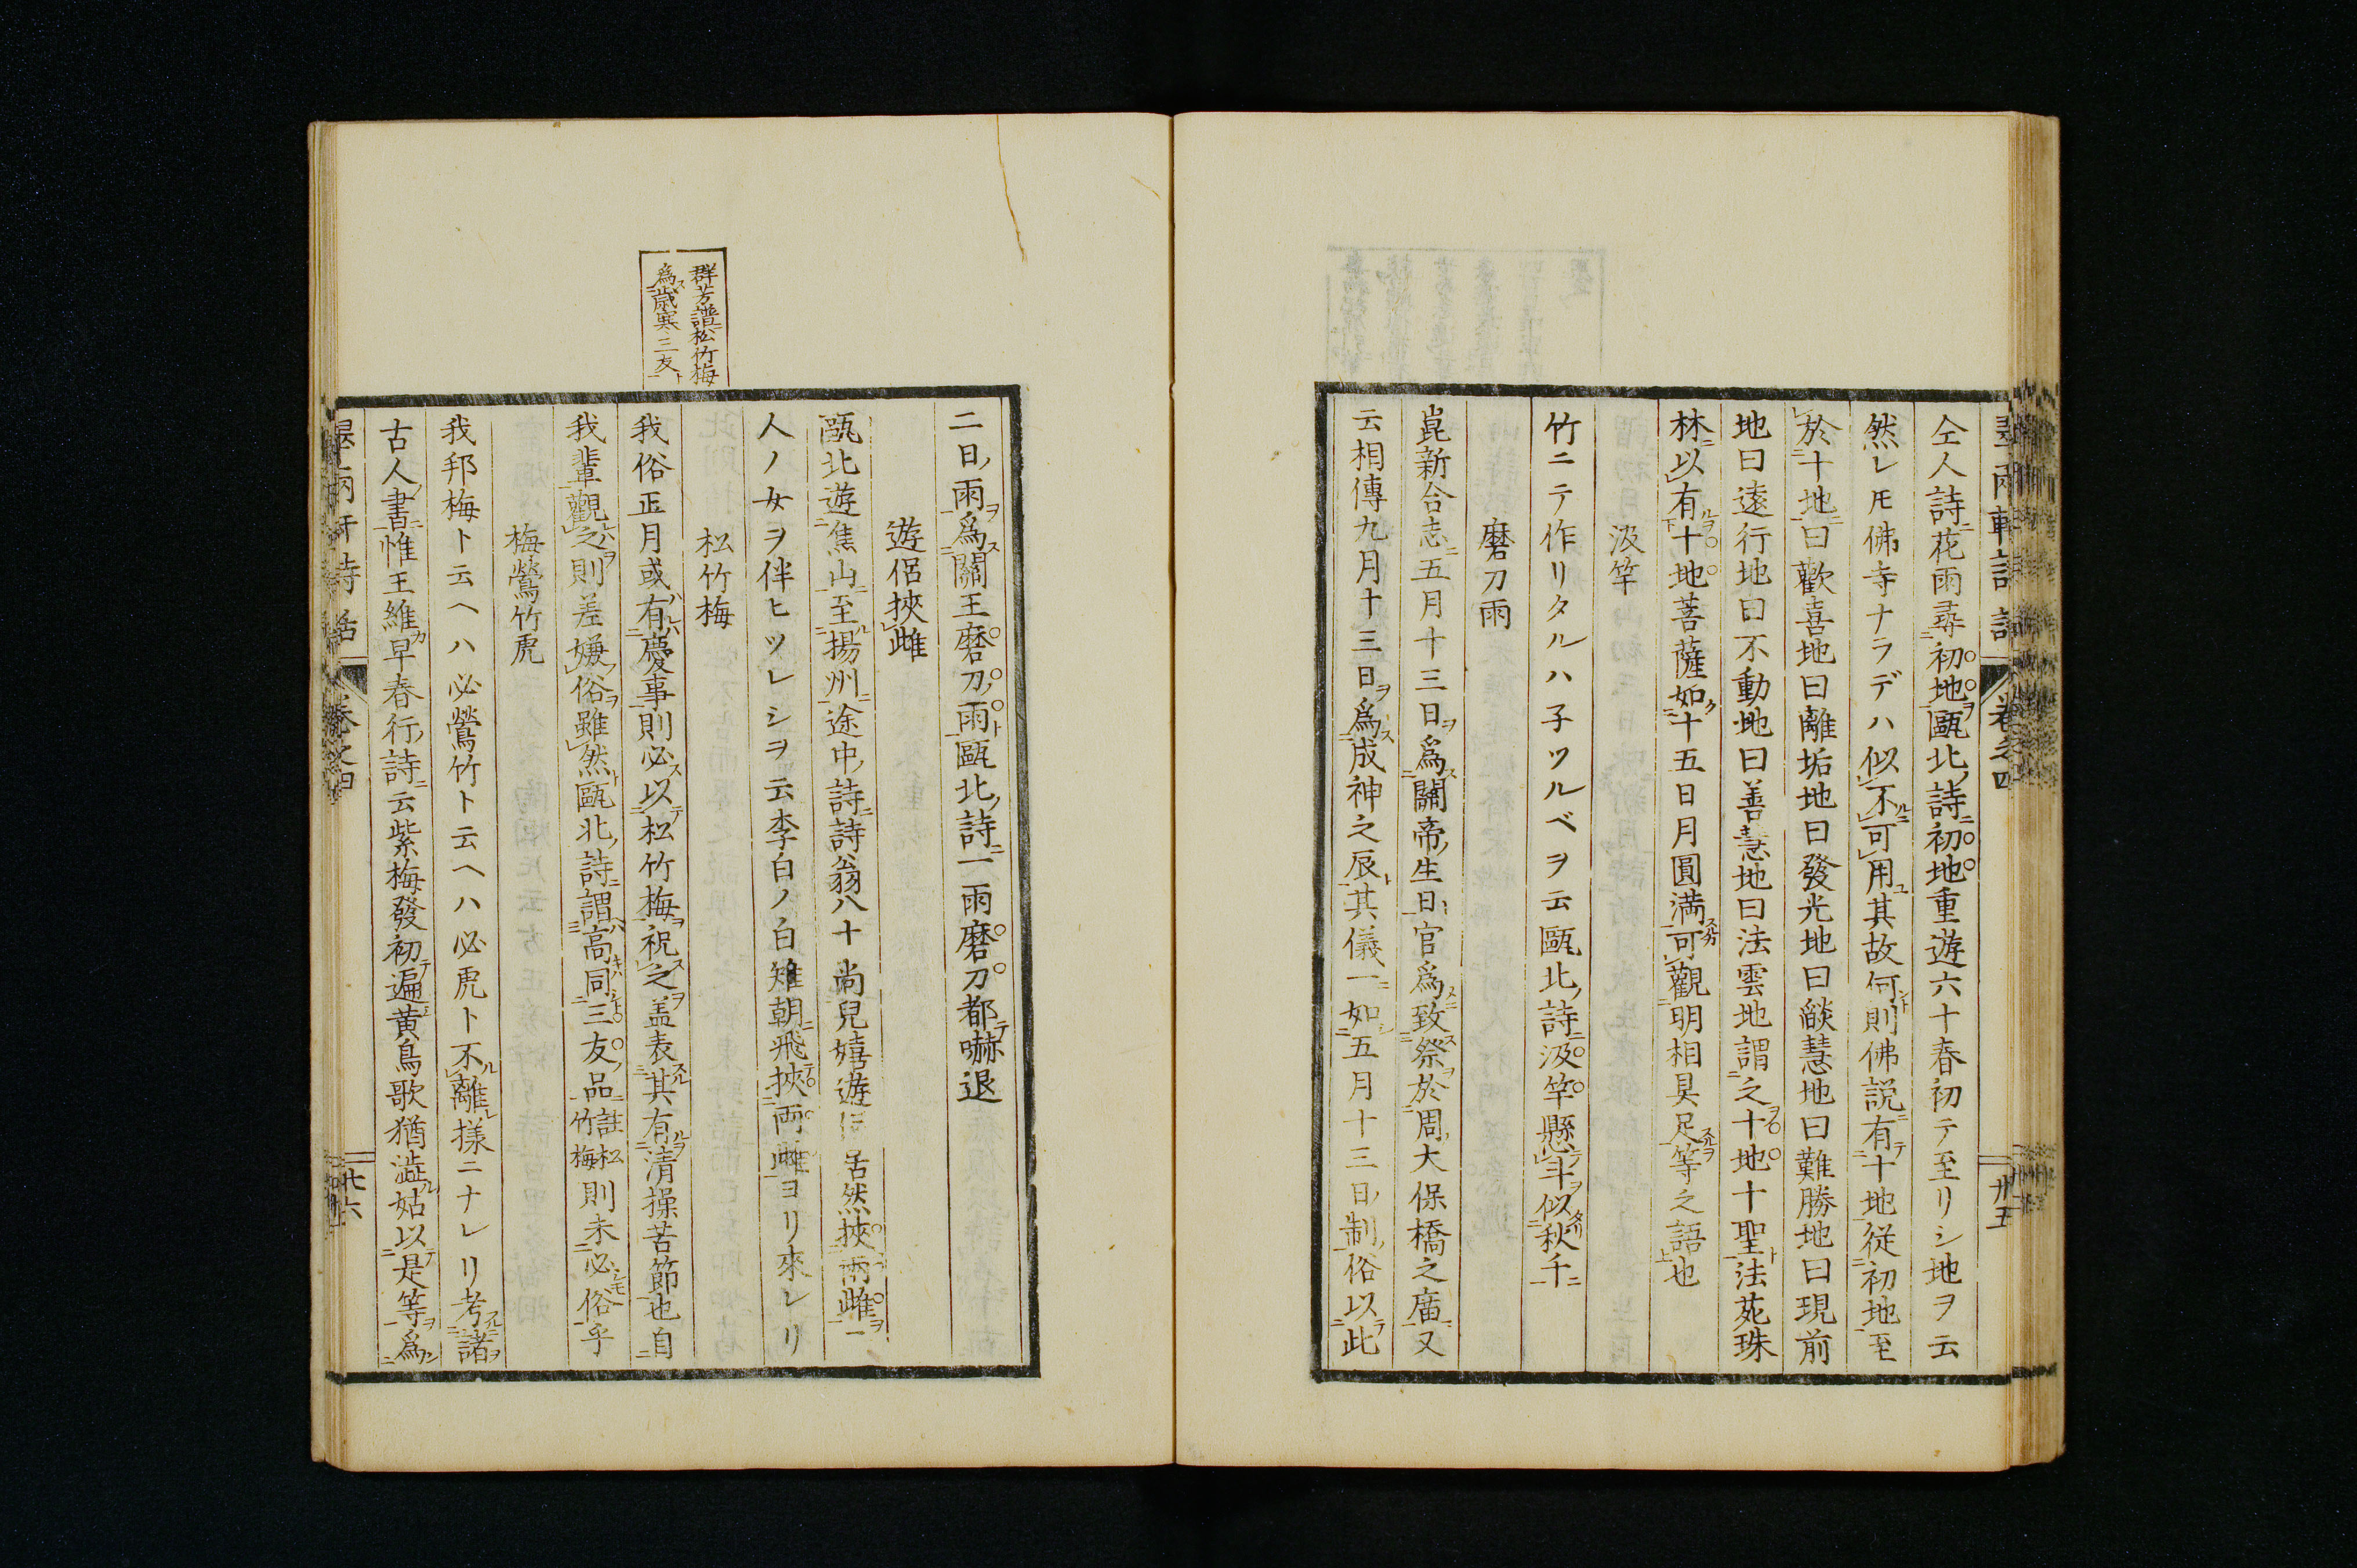 仝人詩ニ花雨尋初地ヲ甌北詩ニ初地重遊六十春初テ至リシ地ヲ云
然レ𪜈佛寺ナラデハ似不可用其故何則佛説有十地從初地至
於十地曰歡喜地曰離垢地曰發光地曰燄慧地曰難勝地曰現前
地曰遠行地曰不動地曰善慧地曰法雲地謂之十地十聖法苑珠
林以有十地菩薩如十五日月圓滿可觀明相具足等之語也
汲竿
竹ニテ作リタルハ子ツルベヲ云甌北詩汲竿懸斗似秋千
磨刀雨
崑新合志五月十三日爲關帝生日官爲致祭於周大保橋之廣又
云相傳九月十三日爲成神之辰其儀一如五月十三日制俗以此
二日雨爲關王磨刀雨甌北詩一雨磨刀都嚇退
遊侶挾雌
甌北遊焦山至揚州途中詩詩翁八十尚兒嬉遊 居然挾兩雌一
人ノ女ヲ伴ヒツレシヲ云李白ノ白雉朝飛挾兩雌ヨリ來レリ
松竹梅
群芳譜松竹梅
爲歳寒三友
我俗正月或有慶事則必以松竹梅祝之盖表其有清操苦節也自
我輩觀之則差嫌俗雖然甌北詩謂高同三友品註松竹梅則未必俗乎
梅鶯竹虎
我邦梅ト云ヘハ必鶯竹ト云ヘハ必虎ト不離樣ニナレリ考諸
古人書惟王維早春行詩云紫梅發初遍黄鳥歌猶澁姑以是等爲
卷之四
廿六